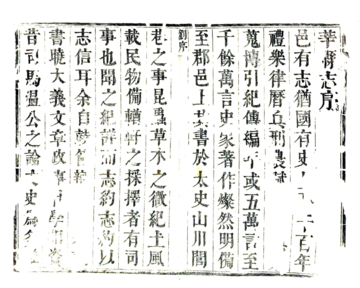 華亭志序
邑有志猶國有史
千百年
禮樂律曆兵刑農
蒐博引紀傳編年或五萬言至
千餘萬言史家著作燦然明備
劉序
至郡邑上其書於太史山川閭
巷之事昆蟲草木之微紀土風
載民物備輶軒之採擇者有司
事也聞之紀詳而志約志約以
志信耳余自
書曉大義文章政事
昔司馬溫公之論史